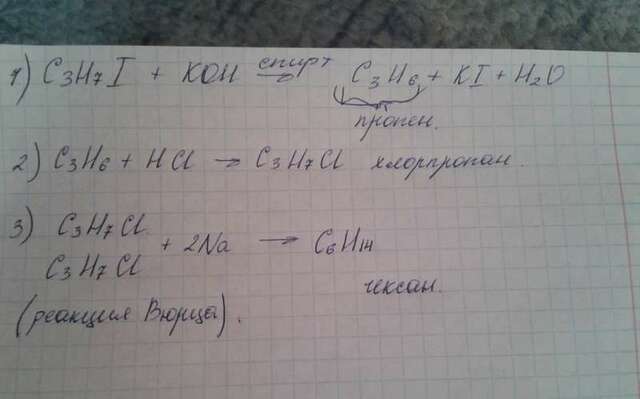 1) C3H7I + KOH спирт → C3H6 + KI + H2O
пропен.
2) C3H6 + HCl → C3H7Cl хлорпропан.
3) C3H7Cl
+ 2Na → C6H14
C3H7Cl
гексан.
(реакция Вюрца).